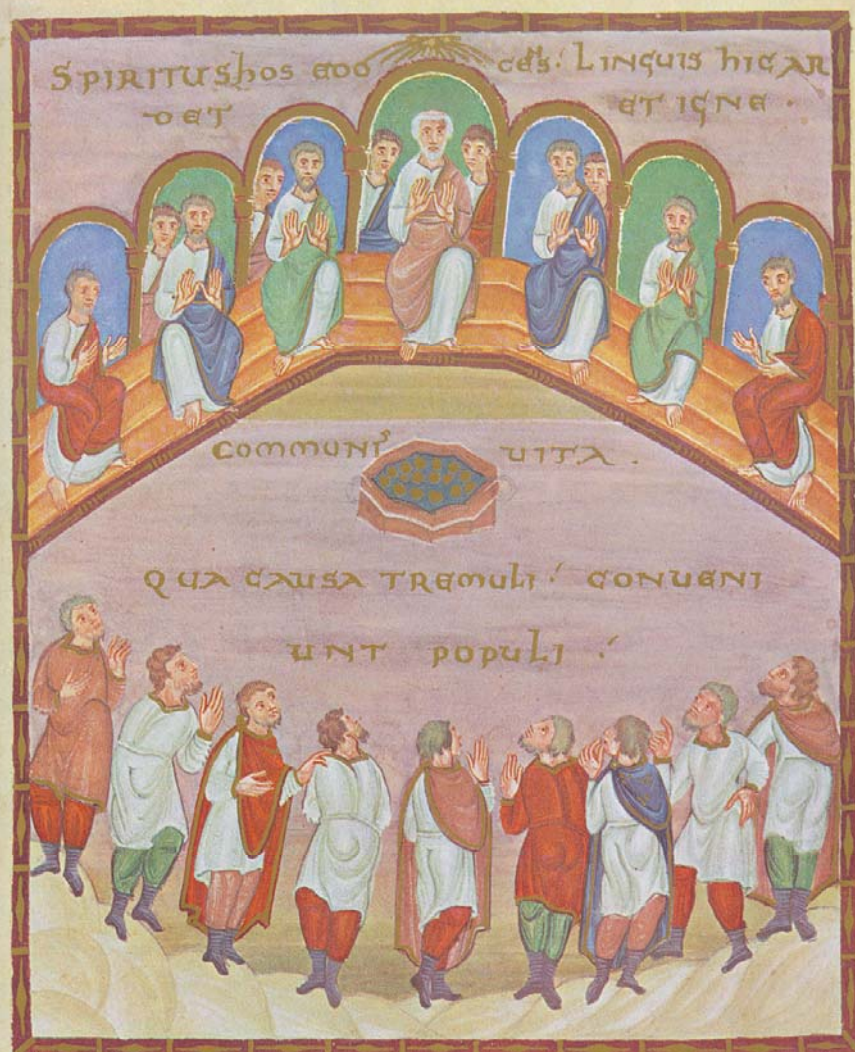 SPIRITUS hOS EDO CENS. LINGUIS hIC AR
DET ET IGNE .
COMMUNIS UITA .
QUA CAUSA TREMULI. CONUENI
UNT POPULI.